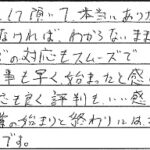 して頂いて、本当にあり
なければ わからないまま
の対応もスムーズで
事も早く始まったと感
応も良く評判も、いい感
業の始まりと終わりには、
です。